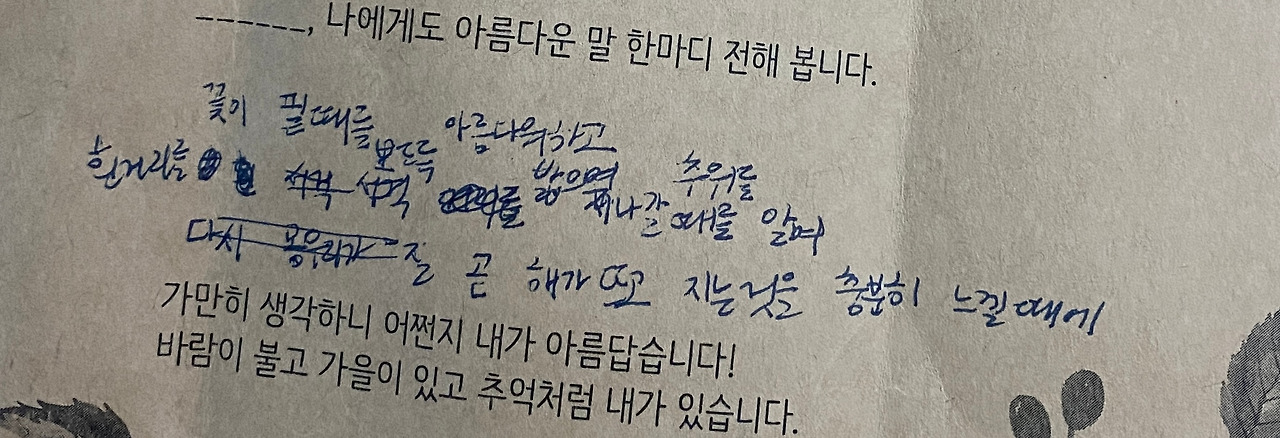 ______, 나에게도 아름다운 말 한마디 전해 봅니다.
꽃이 필때를 아름다워하고
보도록
흰거리를 사격 밟으며 추위를
지나갈 때를 알며
다시 봉우리가 질 곧 해가 뜨고 지는것을 충분히 느낄때에
가만히 생각하니 어쩐지 내가 아름답습니다!
바람이 불고 가을이 있고 추억처럼 내가 있습니다.